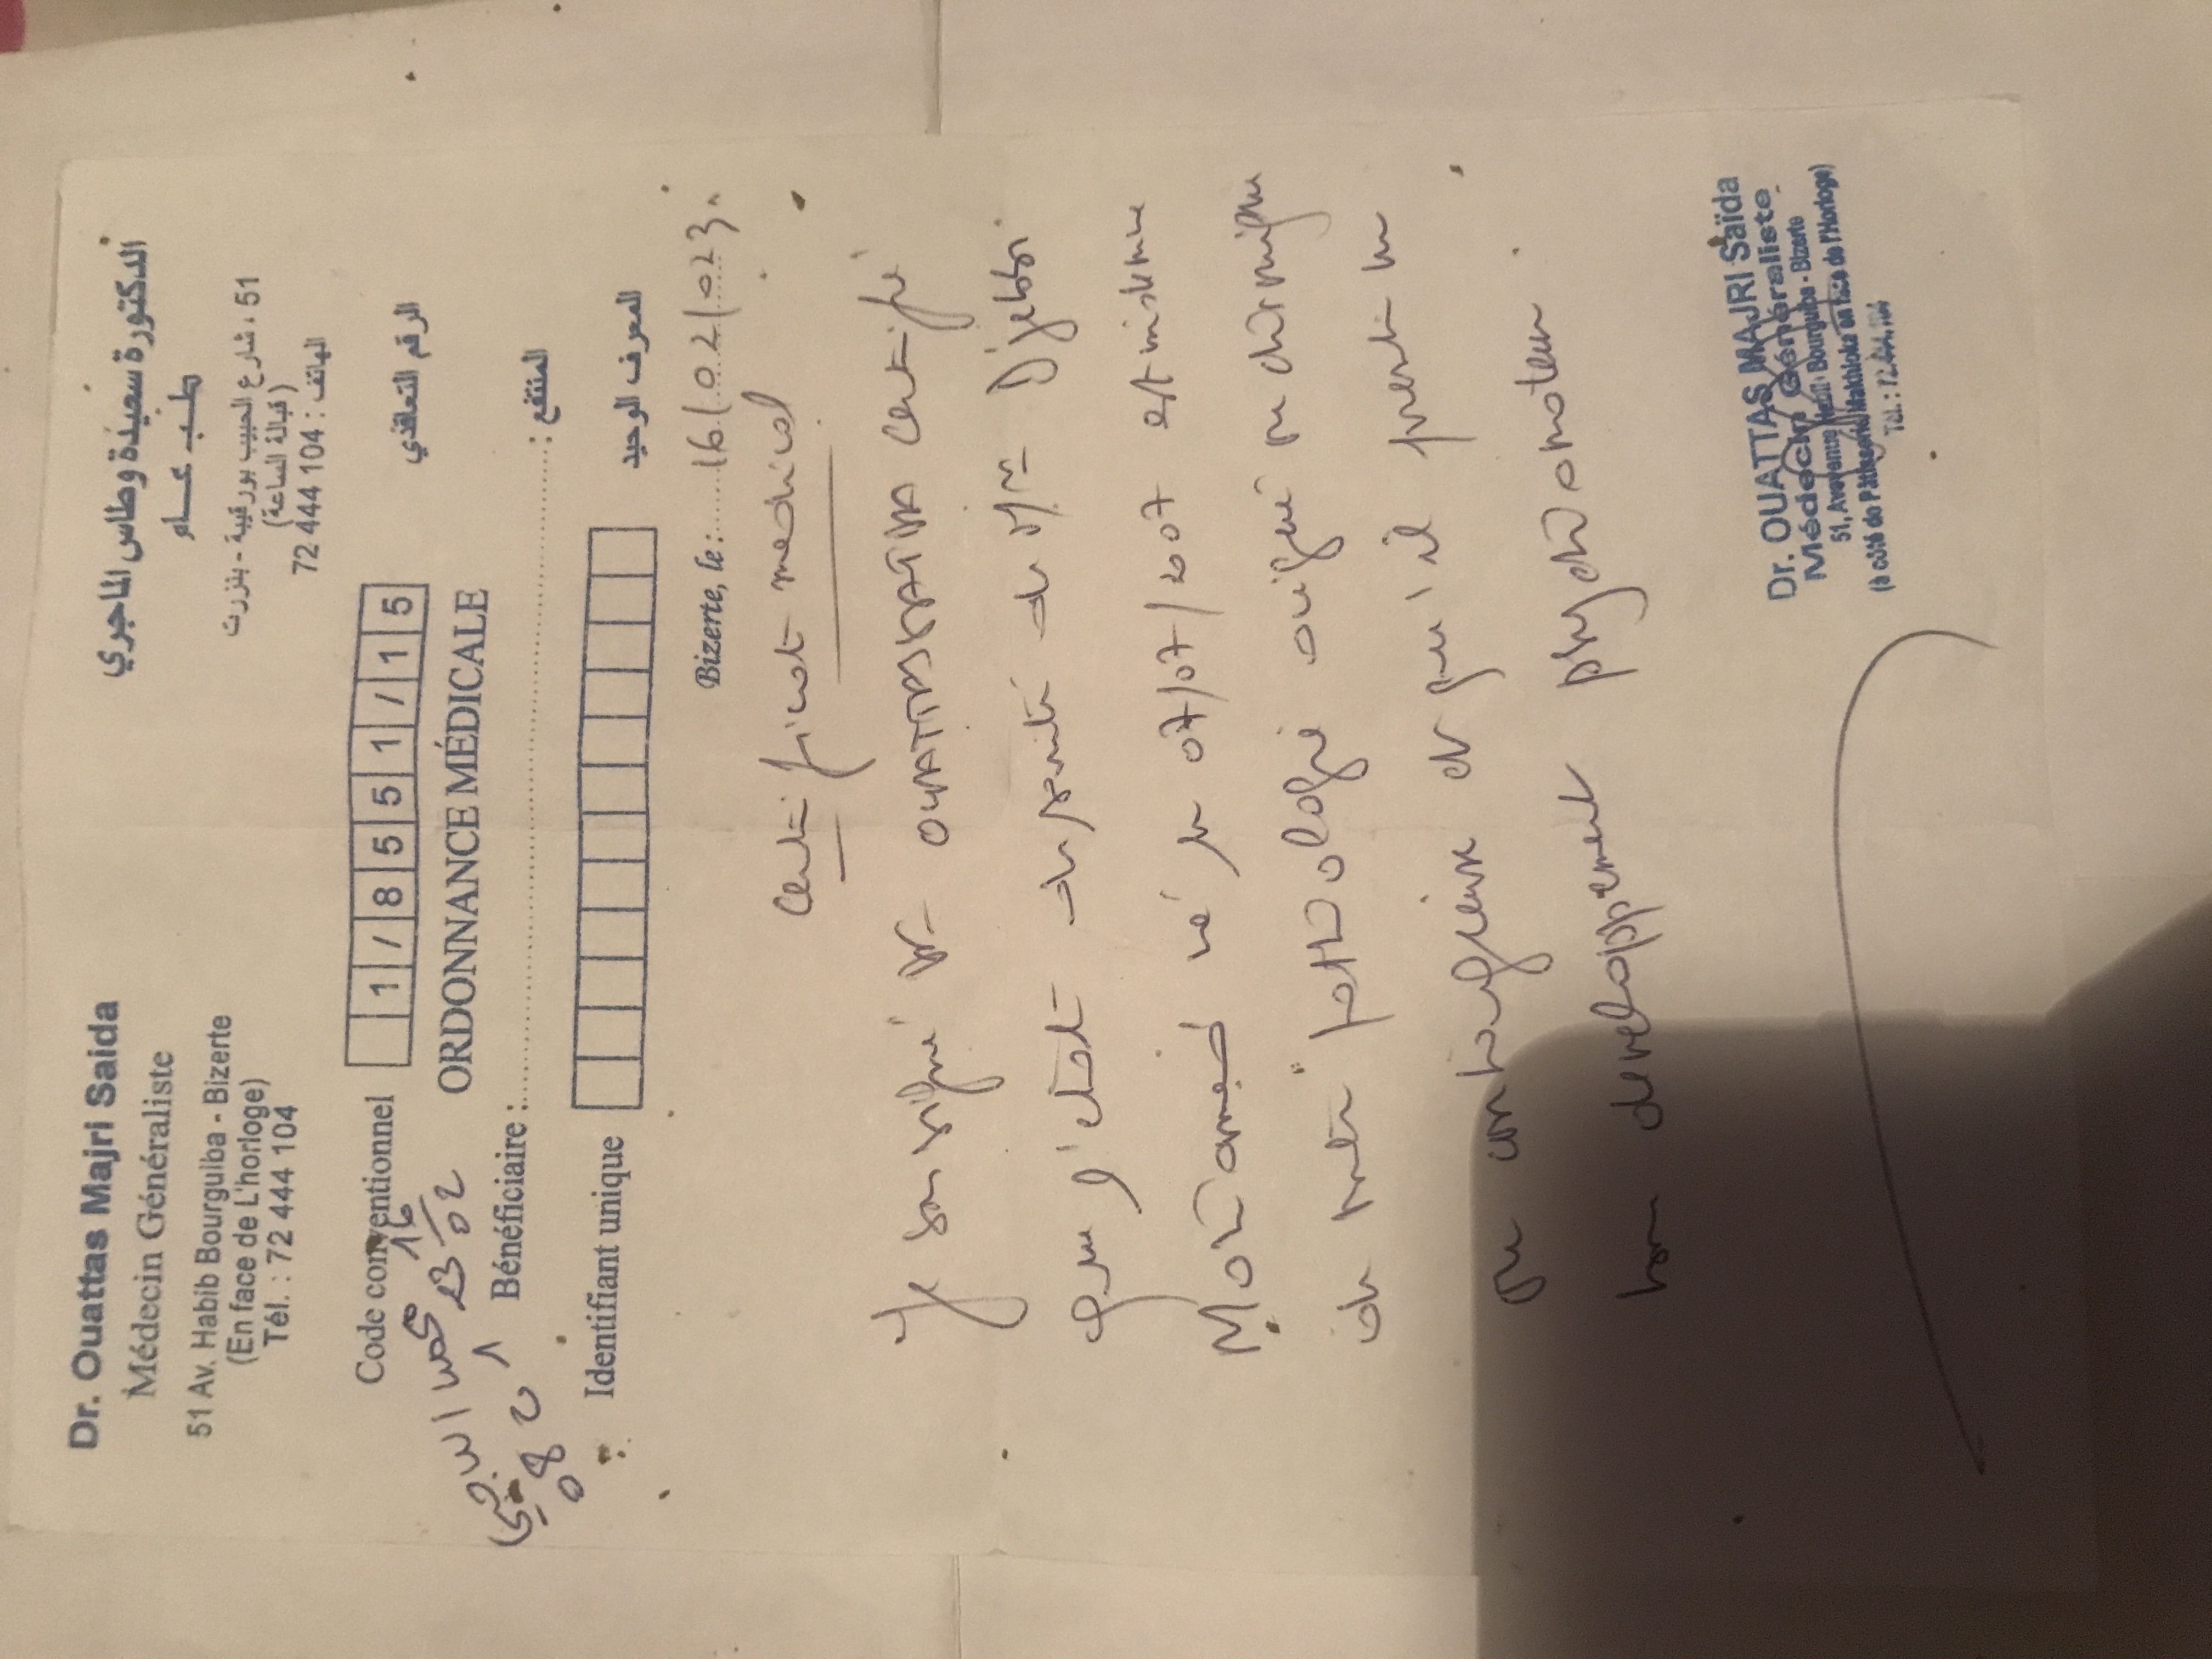 Dr. Ouattas Majri Saida
Médecin Généraliste
51 Av. Habib Bourguiba - Bizerte
(En face de L'horloge)
Tél. : 72 444 104
الدكتورة سعيدة وطاس الماجري
طب عام
51، شارع الحبيب بورقيبة - بنزرت
(قبالة الساعة)
الهاتف : 104 444 72
Code conventionnel 1/8551/15 الرقم التعاقدي
16
23 02
ORDONNANCE MÉDICALE
Bénéficiaire : المنتفع :
Identifiant unique المعرف الوحيد
Bizerte, le : 16/02/023
Certificat medical
Je soussigné Dr OUATTAS SAIDA certifie
que l'état de santé de Mr Djebbi
Mohamed né le 07/07/2007 est indemne
de toute pathologie chronique
contagieuse et qu'il présente un
bon developpement psychomoteur.
Dr. OUATTAS MAJRI Saïda
Médecin Généraliste
51, Avenue Habib Bourguiba - Bizerte
(à côté de Pâtisserie en face de l'Horloge)
Tél. : 72.444.104